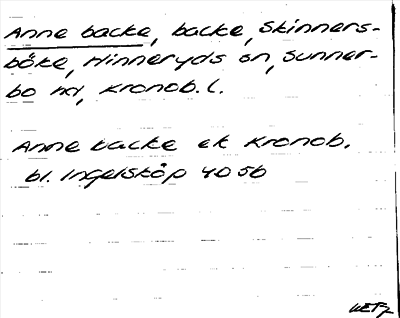 Anne backe, backe, Skinners-
böke, Hinneryds sn, Sunner-
bo hd, Kronob. l.
Anne backe ek Kronob.
bl. Ingelsköp 4056